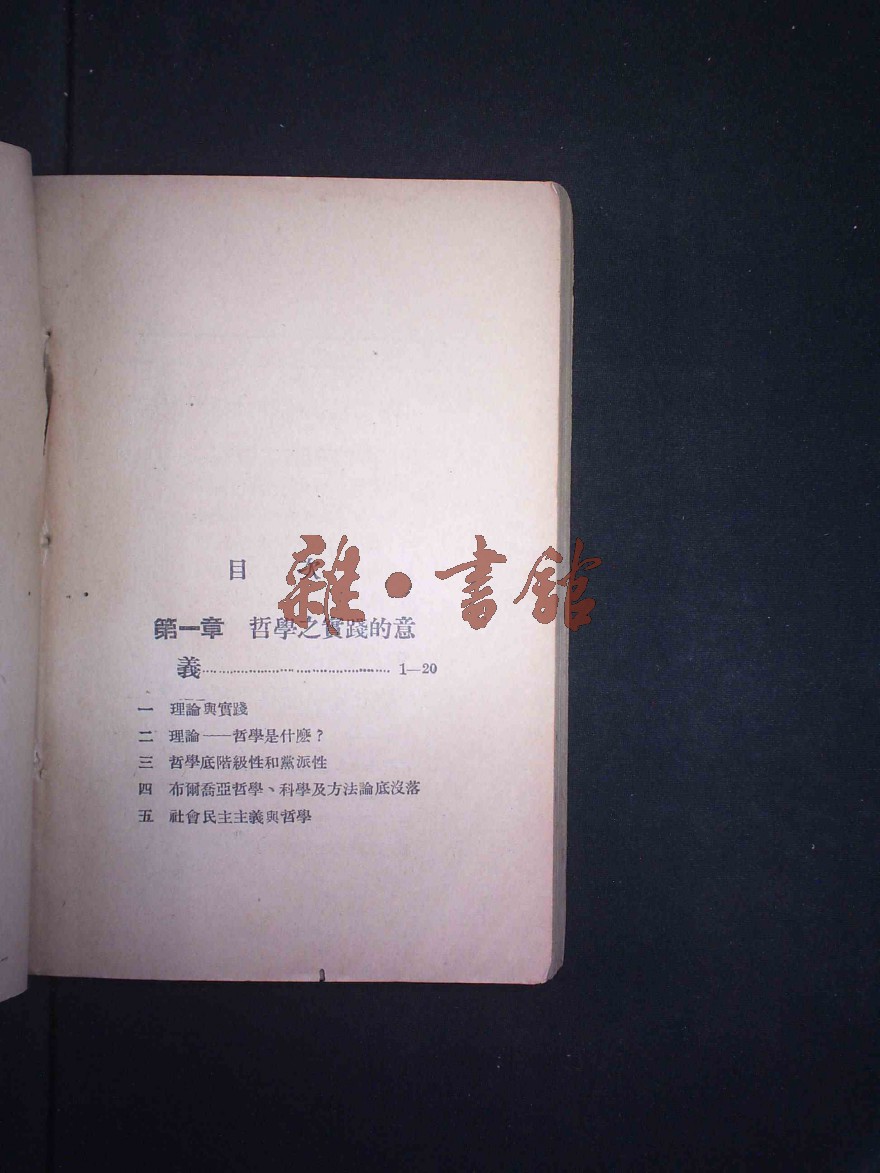 目 次
雜·書館
第一章 哲學之實踐的意
義……………………………… 1—20
一 理論與實踐
二 理論——哲學是什麽？
三 哲學底階級性和黨派性
四 布爾喬亞哲學、科學及方法論底沒落
五 社會民主主義與哲學